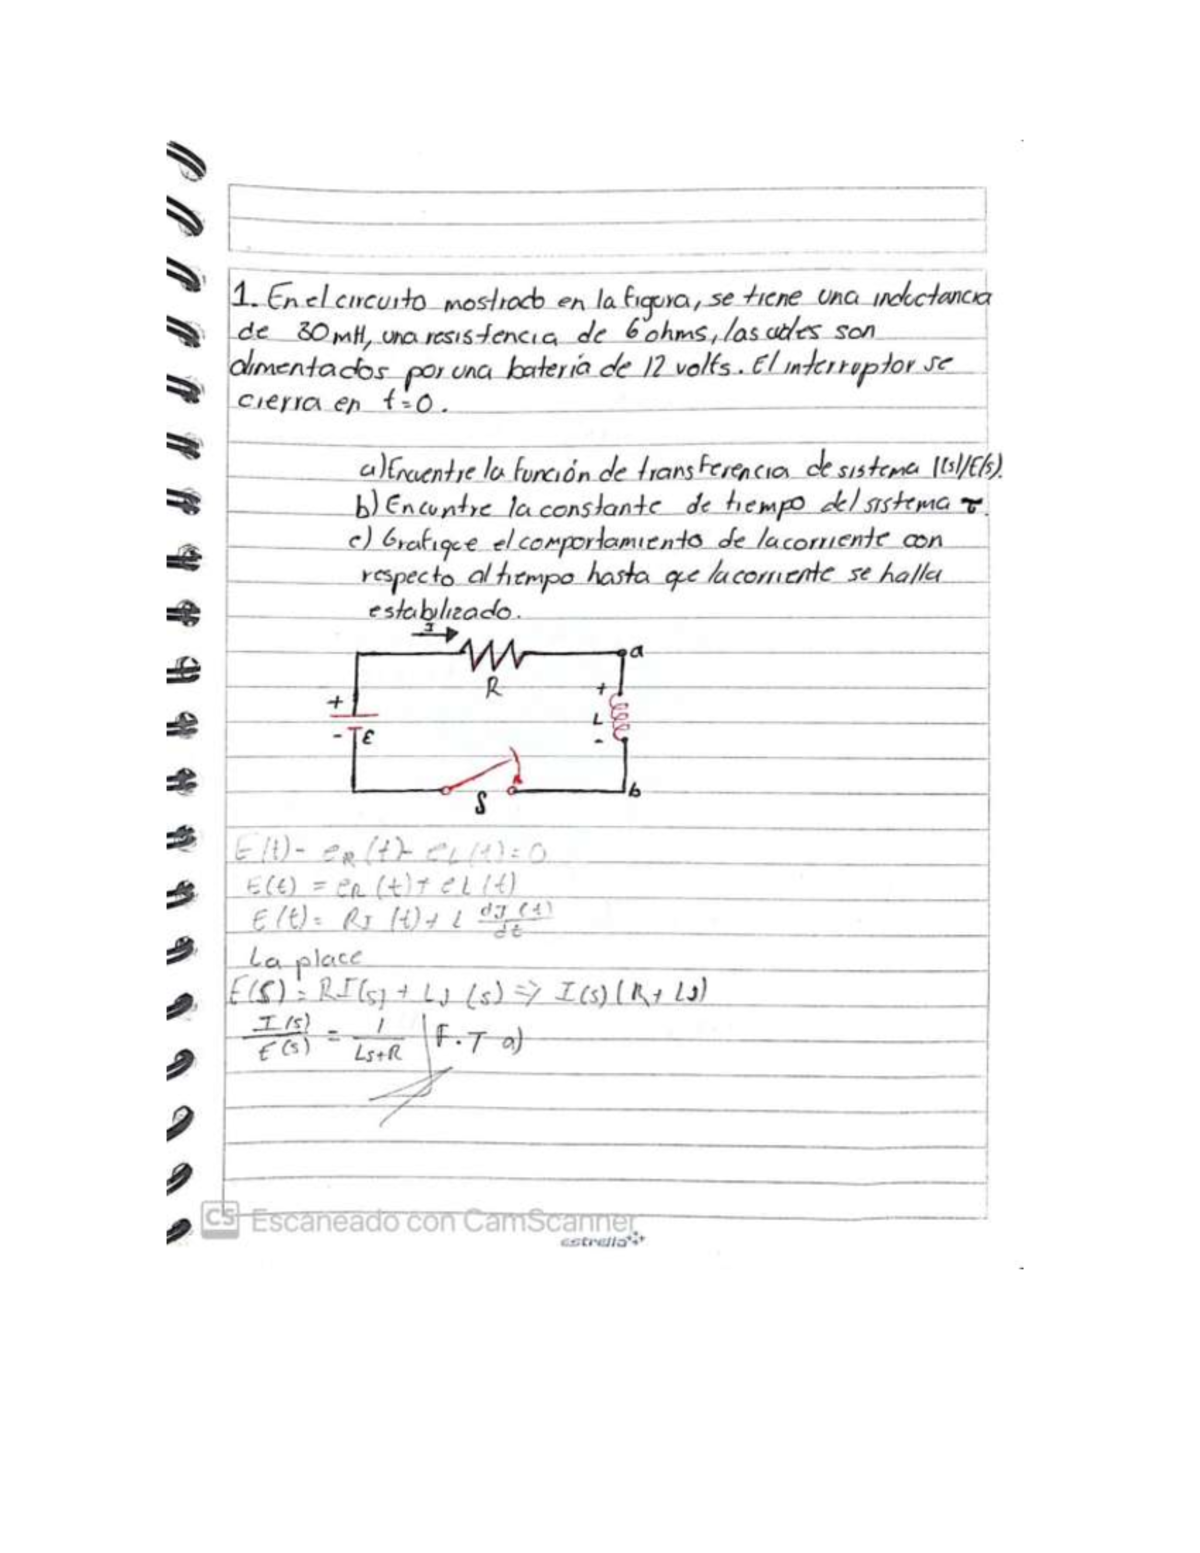 1. En el circuito mostrado en la figura, se tiene una inductancia
de 30 mH, una resistencia de 6 ohms, las cuales son
alimentados por una batería de 12 volts. El interruptor se
cierra en t=0.
a) Encuentre la función de transferencia de sistema I(s)/E(s).
b) Encuntre la constante de tiempo del sistema τ.
c) Grafique el comportamiento de la corriente con
respecto al tiempo hasta que la corriente se halla
estabilizado.
I
R
a
+
+
L
- E
-
S
b
E(t) - eR(t) - eL(t) = 0
E(t) = eR(t) + eL(t)
E(t) = RI(t) + L dI(t)/dt
La place
E(S) = RI(s) + LJ(s) => I(s)(R + Ls)
I(s)/E(s) = 1/Ls+R F.T a)
CS Escaneado con CamScanner
estrella